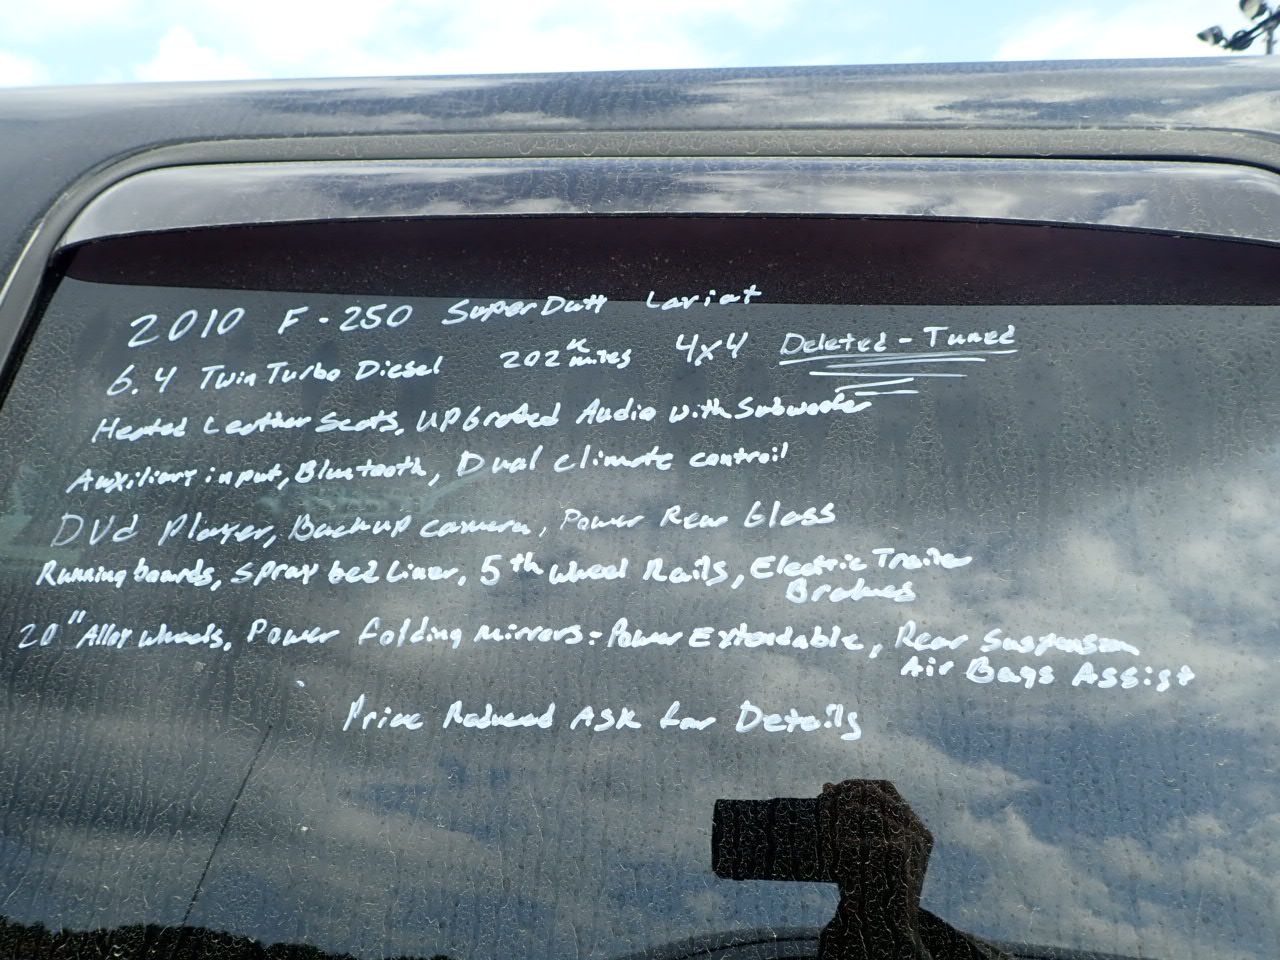 2010 F-250 SuperDuty Lariat
6.4 Twin Turbo Diesel 202K miles 4x4 Deleted - Tuned
Heated Leather Seats, UPGraded Audio with Subwoofer
Auxiliary input, Bluetooth, Dual climate controil
DVd Player, Backup camera, Power Rear Glass
Running boards, spray bed Liner, 5th wheel Rails, Electric Trailer
Brakes
20" Alloy wheels, Power folding mirrors = Power Extendable, Rear Suspension
Air Bags Assist
Price Reduced ASK for Details